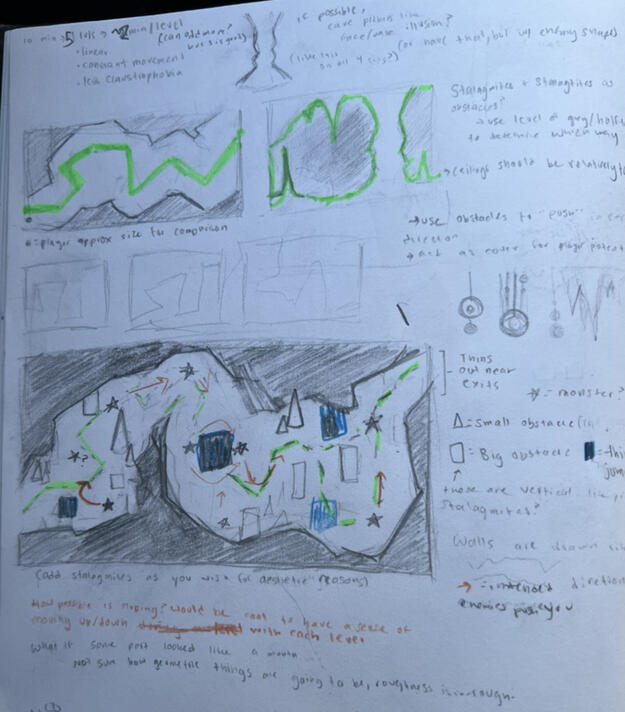 10 min → 5 lvls → ~2 min/level
(can add more?
but 5 is good)
• linear
• constant movement
• less claustrophobia
if possible,
cave pillars like
face/vase illusion?
(like this
on all 4 sides?)
(or have that, but w/ enemy shapes)
Stalagmites + Stalagtites as
obstacles?
→ use level of
to determine which way
→ ceilings should be relatively
→ use obstacles to "push" in
direction
→ act as cover for player
= player approx size for comparison
Thins
out near
exits
= monster?
= small obstacle
= Big obstacle
those are vertical like
stalagmites?
Walls are drawn
→ = intended direction
enemies push you
(add stalagmites as you wish for aesthetic reasons)
How possible is sloping? Would be cool to have a sense of
moving up/down with each level
What if some part looked like a mouth
Not sure how geometric things are going to be, roughness is enough.